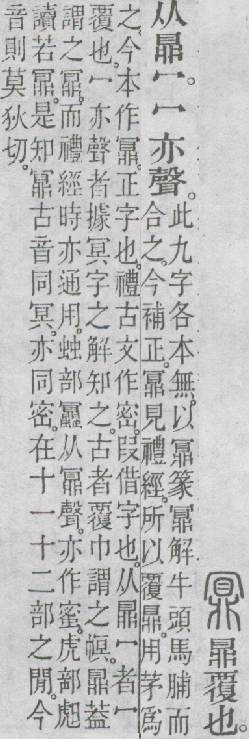 鼏鼎覆也。
从鼎冖。冖亦聲。此九字各本無。以鼏篆鼏解牛頭馬脯而
合之。今補正。鼏見禮經。所以覆鼎。用茅爲
之。今本作鼏。正字也。禮古文作密。叚借字也。从鼎冖者。冖
覆也。冖亦聲者。據冥字之解知之。古者覆巾謂之幎。鼎蓋
謂之鼏。而禮經時亦通用。䖵部䘇从鼏聲。亦作蜜。虎部䖑
讀若鼏。是知鼏古音同冥。亦同密。在十一十二部之閒。今
音則莫狄切。